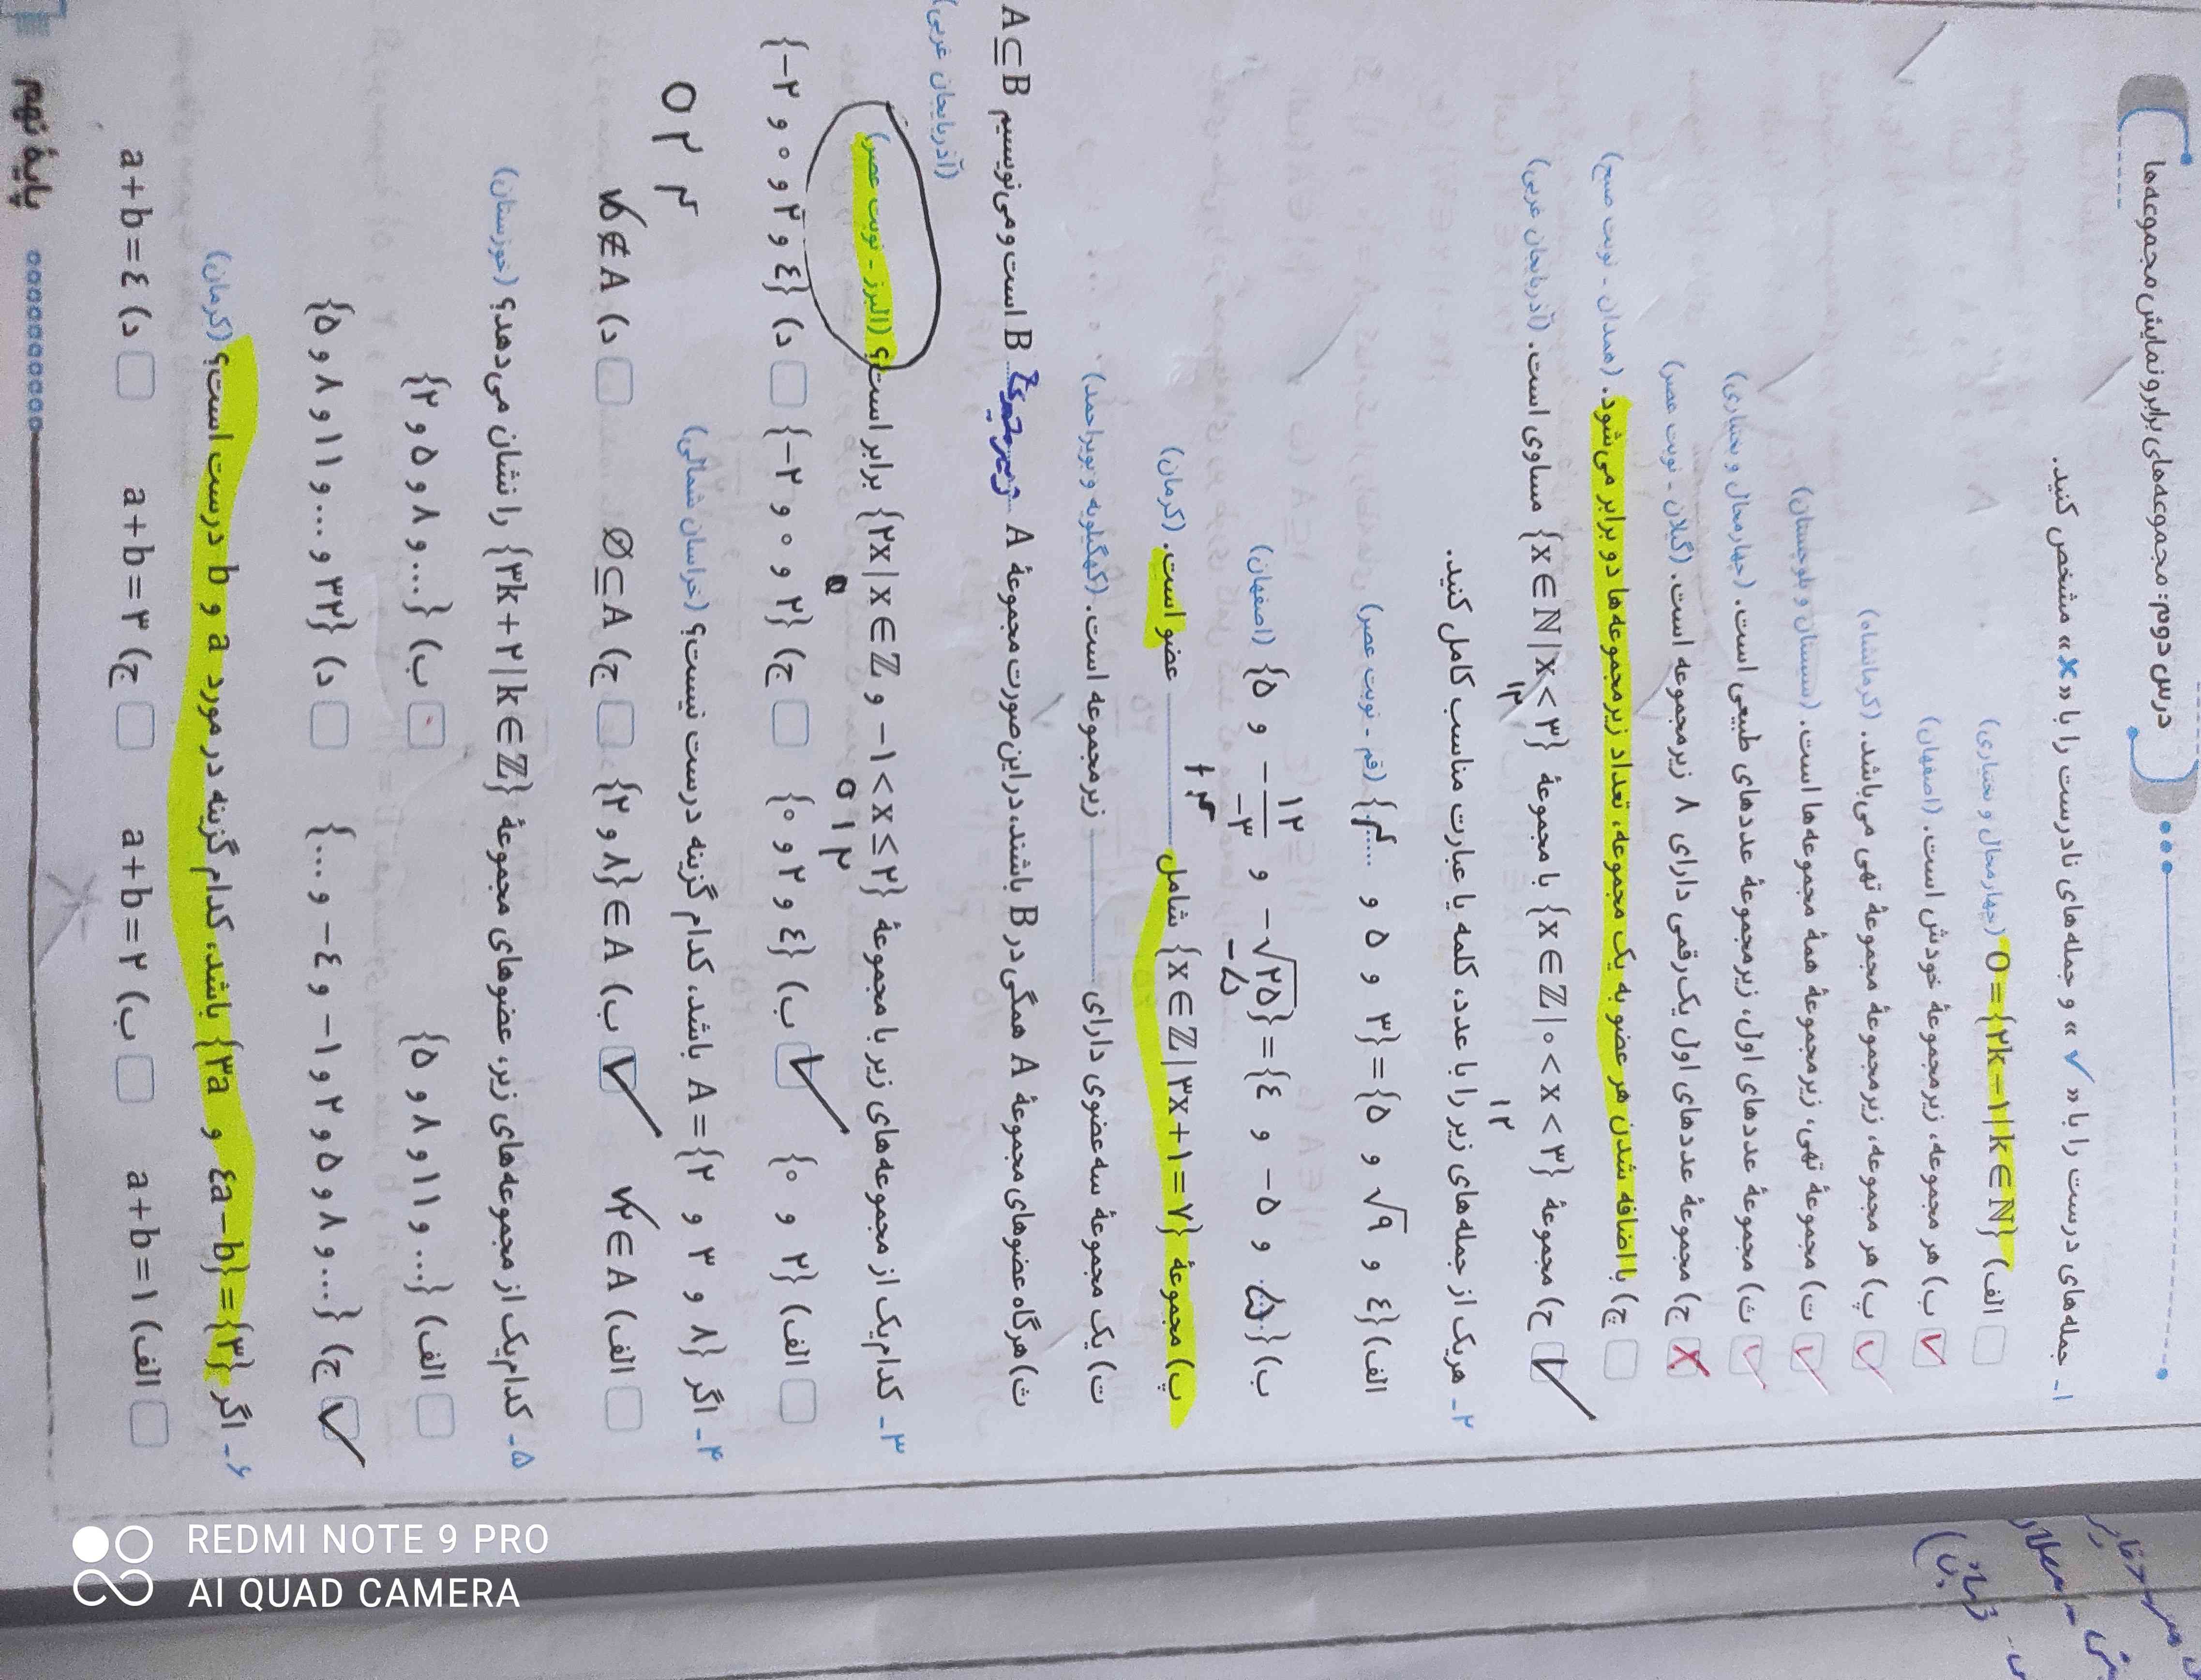 درس دوم: مجموعه‌های برابر و نمایش مجموعه‌ها
۱- جمله‌های درست را با «✓» و جمله‌های نادرست را با «×» مشخص کنید.
الف) O = {۲k − ۱ | k ∈ ℕ} (چهارمحال و بختیاری)
✓ ب) هر مجموعه، زیرمجموعهٔ خودش است. (اصفهان)
✓ پ) هر مجموعه، زیرمجموعهٔ مجموعهٔ تهی می‌باشد. (کرمانشاه)
✓ ت) مجموعهٔ تهی، زیرمجموعهٔ همهٔ مجموعه‌ها است. (سیستان و بلوچستان)
✓ ث) مجموعهٔ عددهای اول، زیرمجموعهٔ عددهای طبیعی است. (چهارمحال و بختیاری)
× ج) مجموعهٔ عددهای اول یک‌رقمی دارای ۸ زیرمجموعه است. (گیلان - نوبت عصر)
چ) با اضافه شدن هر عضو به یک مجموعه، تعداد زیرمجموعه‌ها دو برابر می‌شود. (همدان - نوبت صبح)
✓ ح) مجموعهٔ {x ∈ ℤ | ۰ < x < ۳} با مجموعهٔ {x ∈ ℕ | x < ۳} مساوی است. (آذربایجان غربی)
۱۲ ۱۲
۲- هریک از جمله‌های زیر را با عدد، کلمه یا عبارت مناسب کامل کنید.
الف) {۴ و √۹ و ۵} = {۳ و ۵ و ....} (قم - نوبت عصر)
ب) {..... و ۵− و ۴} = {−√۲۵ و −۱۲/−۳ و ۵} (اصفهان)
−۵
پ) مجموعهٔ {x ∈ ℤ | ۳x + ۱ = ۷} شامل ........ عضو است. (کرمان)
ت) یک مجموعهٔ سه‌عضوی دارای ........ زیرمجموعه است. (کهگیلویه و بویراحمد)
ث) هرگاه عضوهای مجموعهٔ A همگی در B باشند، در این صورت مجموعهٔ A زیرمجموعهٔ B است و می‌نویسیم A ⊆ B
(آذربایجان غربی)
۳- کدام‌یک از مجموعه‌های زیر با مجموعهٔ {۲x | x ∈ ℤ و −۱ < x ≤ ۲} برابر است؟ (البرز - نوبت عصر)
۰ ۱ ۲
الف) {۲ و ۰} ✓ ب) {۴ و ۲ و ۰} ج) {۲ و ۰ و ۲−} د) {۴ و ۲ و ۰ و ۲−}
۰ ۲ ۴
۴- اگر A = {۲ و ۳ و ۸} باشد، کدام گزینه درست نیست؟ (خراسان شمالی)
الف) ۲ ∈ A ✓ ب) {۲ و ۸} ∈ A ج) ∅ ⊆ A د) ۵ ∉ A
۵- کدام‌یک از مجموعه‌های زیر، عضوهای مجموعهٔ {۳k + ۲ | k ∈ ℤ} را نشان می‌دهد؟ (خوزستان)
الف) {... و ۱۱ و ۸ و ۵} ب) {... و ۸ و ۵ و ۲}
✓ ج) {... و ۸ و ۵ و ۲ و ۱− و ۴− و ...} د) {۳۲ و ... و ۱۱ و ۸ و ۵}
۶- اگر {۳} = {۴a − b و ۳a} باشد، کدام گزینه در مورد a و b درست است؟ (کرمان)
الف) a + b = ۱ ب) a + b = ۲ ج) a + b = ۳ د) a + b = ۴
پایهٔ نهم
REDMI NOTE 9 PRO
AI QUAD CAMERA